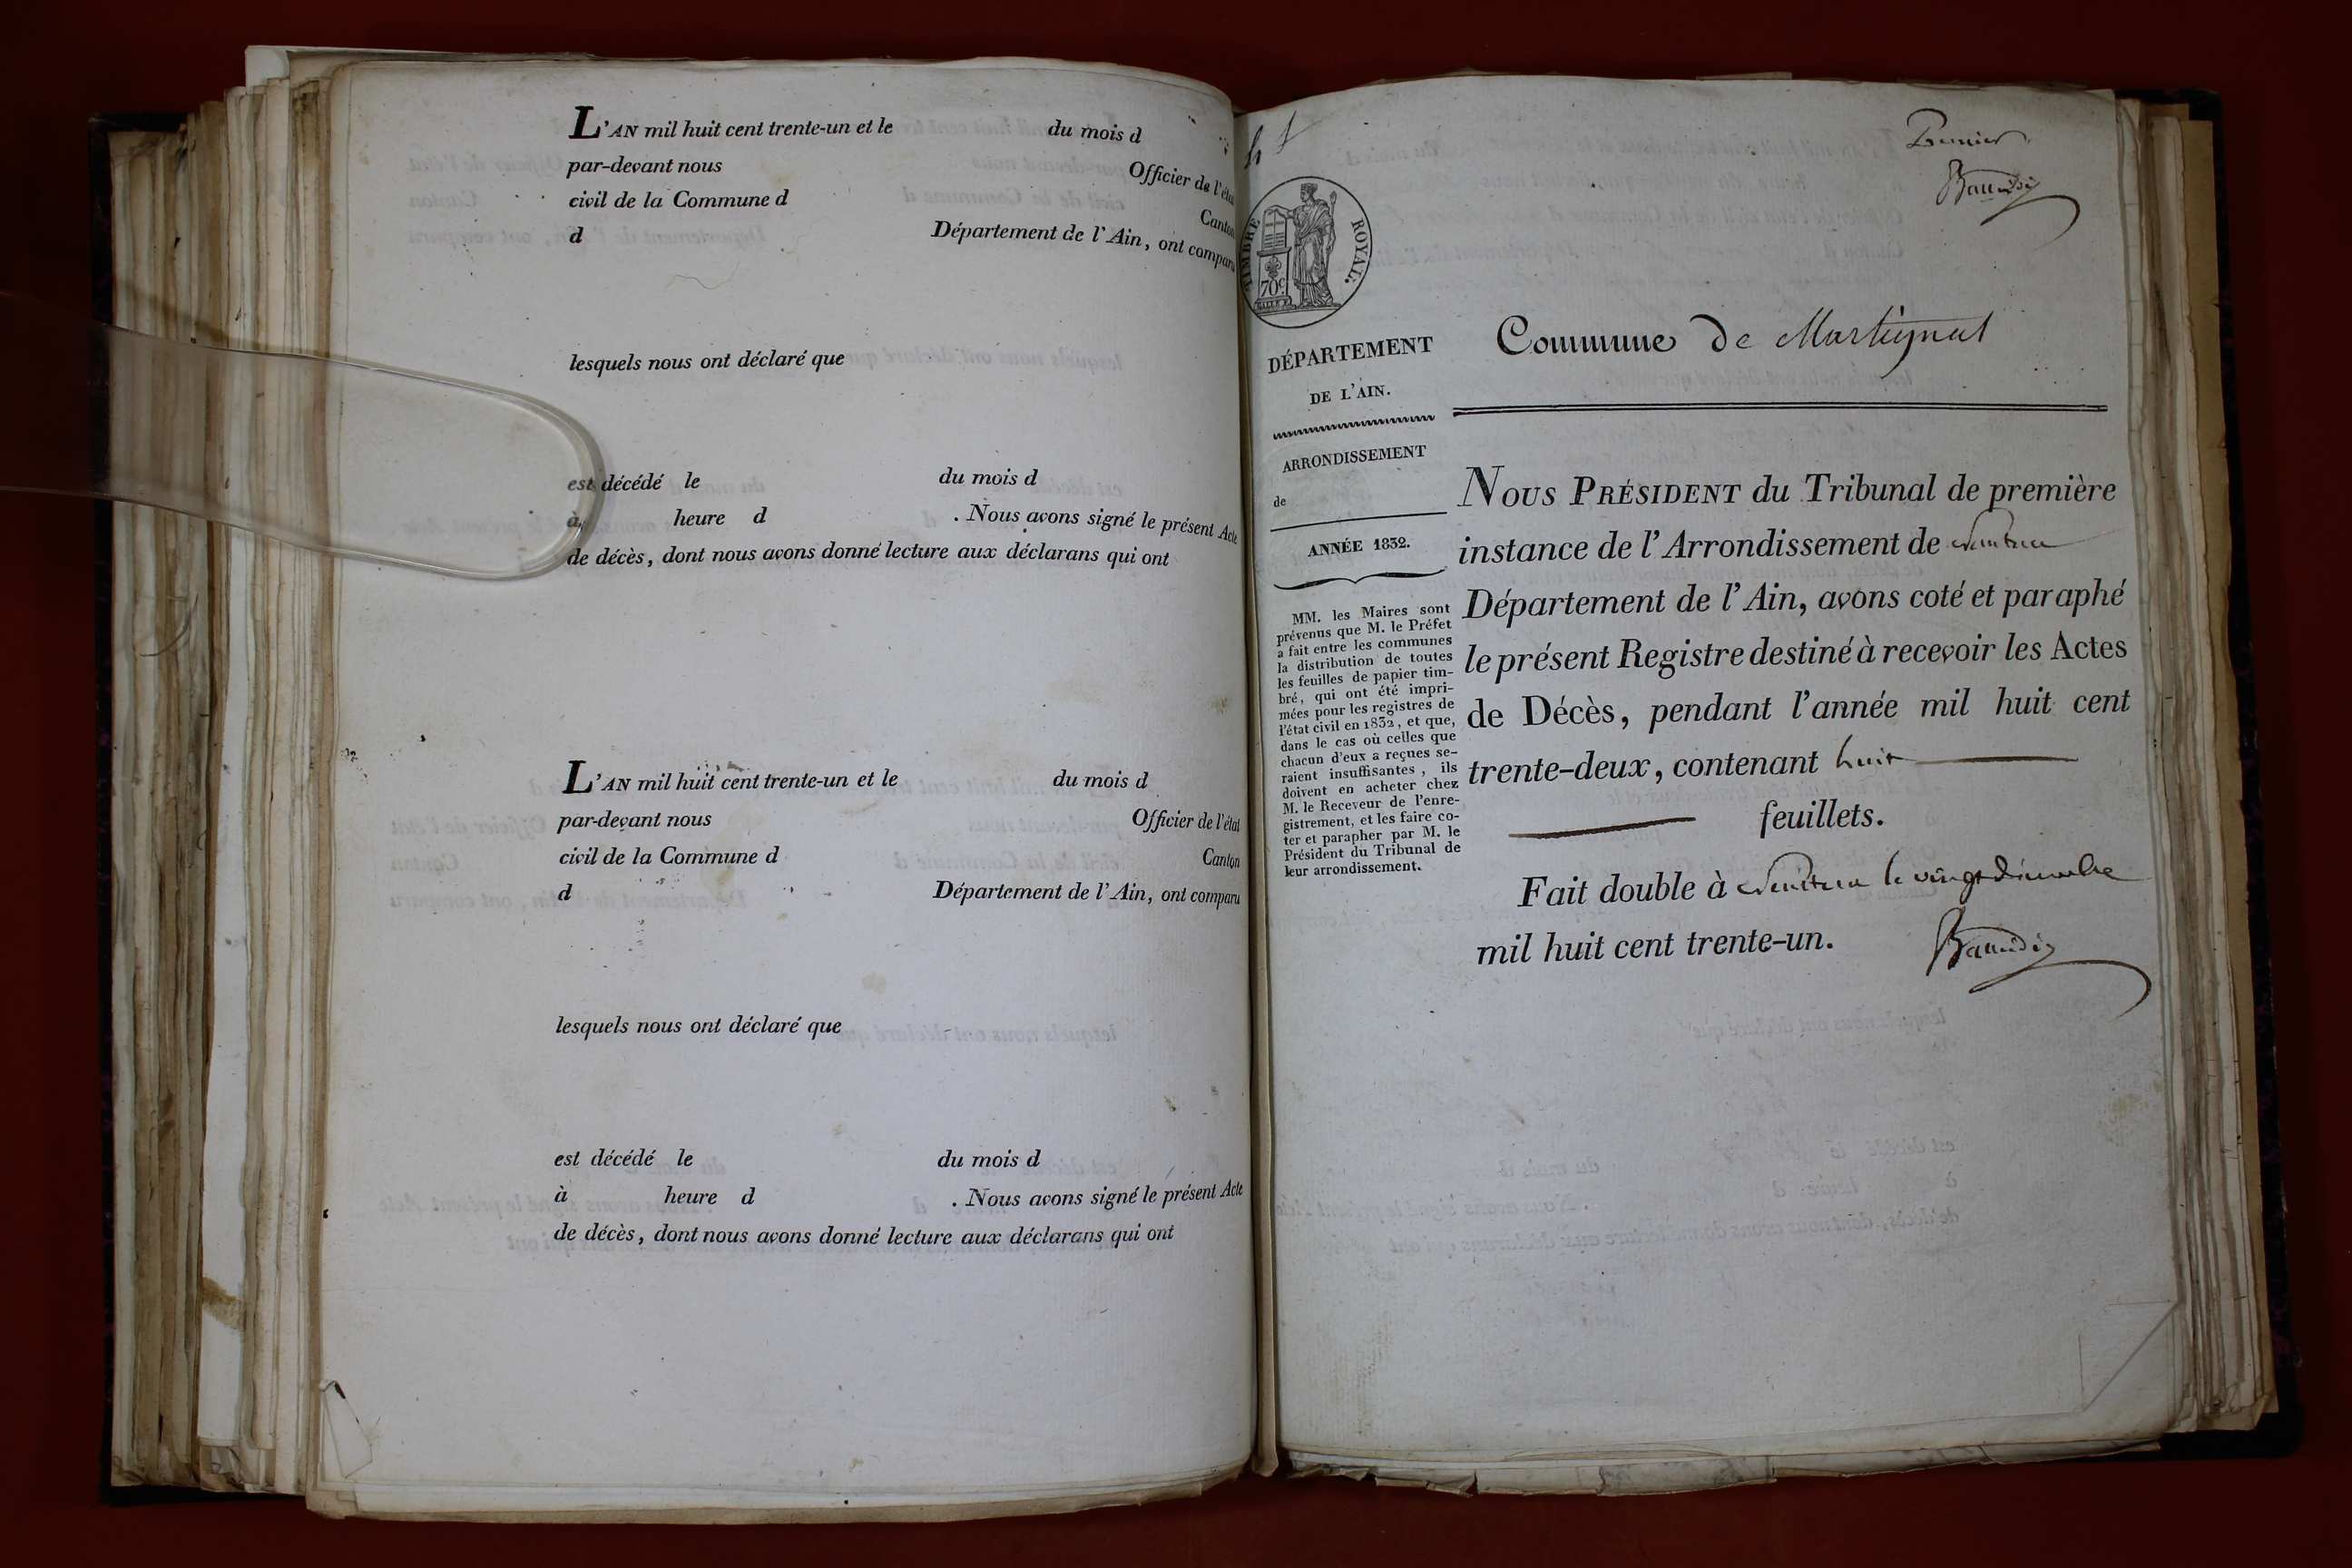 L'AN mil huit cent trente-un et le du mois d
par-devant nous Officier de l'état
civil de la Commune d Canton
d Département de l'Ain, ont comparu
lesquels nous ont déclaré que
est décédé le du mois d
à heure d . Nous avons signé le présent Acte
de décès, dont nous avons donné lecture aux déclarans qui ont
L'AN mil huit cent trente-un et le du mois d
par-devant nous Officier de l'état
civil de la Commune d Canton
d Département de l'Ain, ont comparu
lesquels nous ont déclaré que
est décédé le du mois d
à heure d . Nous avons signé le présent Acte
de décès, dont nous avons donné lecture aux déclarans qui ont
TIMBRE ROYAL.
70c
DÉPARTEMENT
DE L'AIN.
ARRONDISSEMENT
de
ANNÉE 1832.
MM. les Maires sont
prévenus que M. le Préfet
a fait entre les communes
la distribution de toutes
les feuilles de papier tim-
bré, qui ont été impri-
mées pour les registres de
l'état civil en 1832, et que,
dans le cas où celles que
chacun d'eux a reçues se-
raient insuffisantes, ils
doivent en acheter chez
M. le Receveur de l'enre-
gistrement, et les faire co-
ter et parapher par M. le
Président du Tribunal de
leur arrondissement.
Premier
Commune de Martignat
NOUS PRÉSIDENT du Tribunal de première
instance de l'Arrondissement de Nantua
Département de l'Ain, avons coté et paraphé
le présent Registre destiné à recevoir les Actes
de Décès, pendant l'année mil huit cent
trente-deux, contenant huit
feuillets.
Fait double à Nantua le vingt décembre
mil huit cent trente-un.